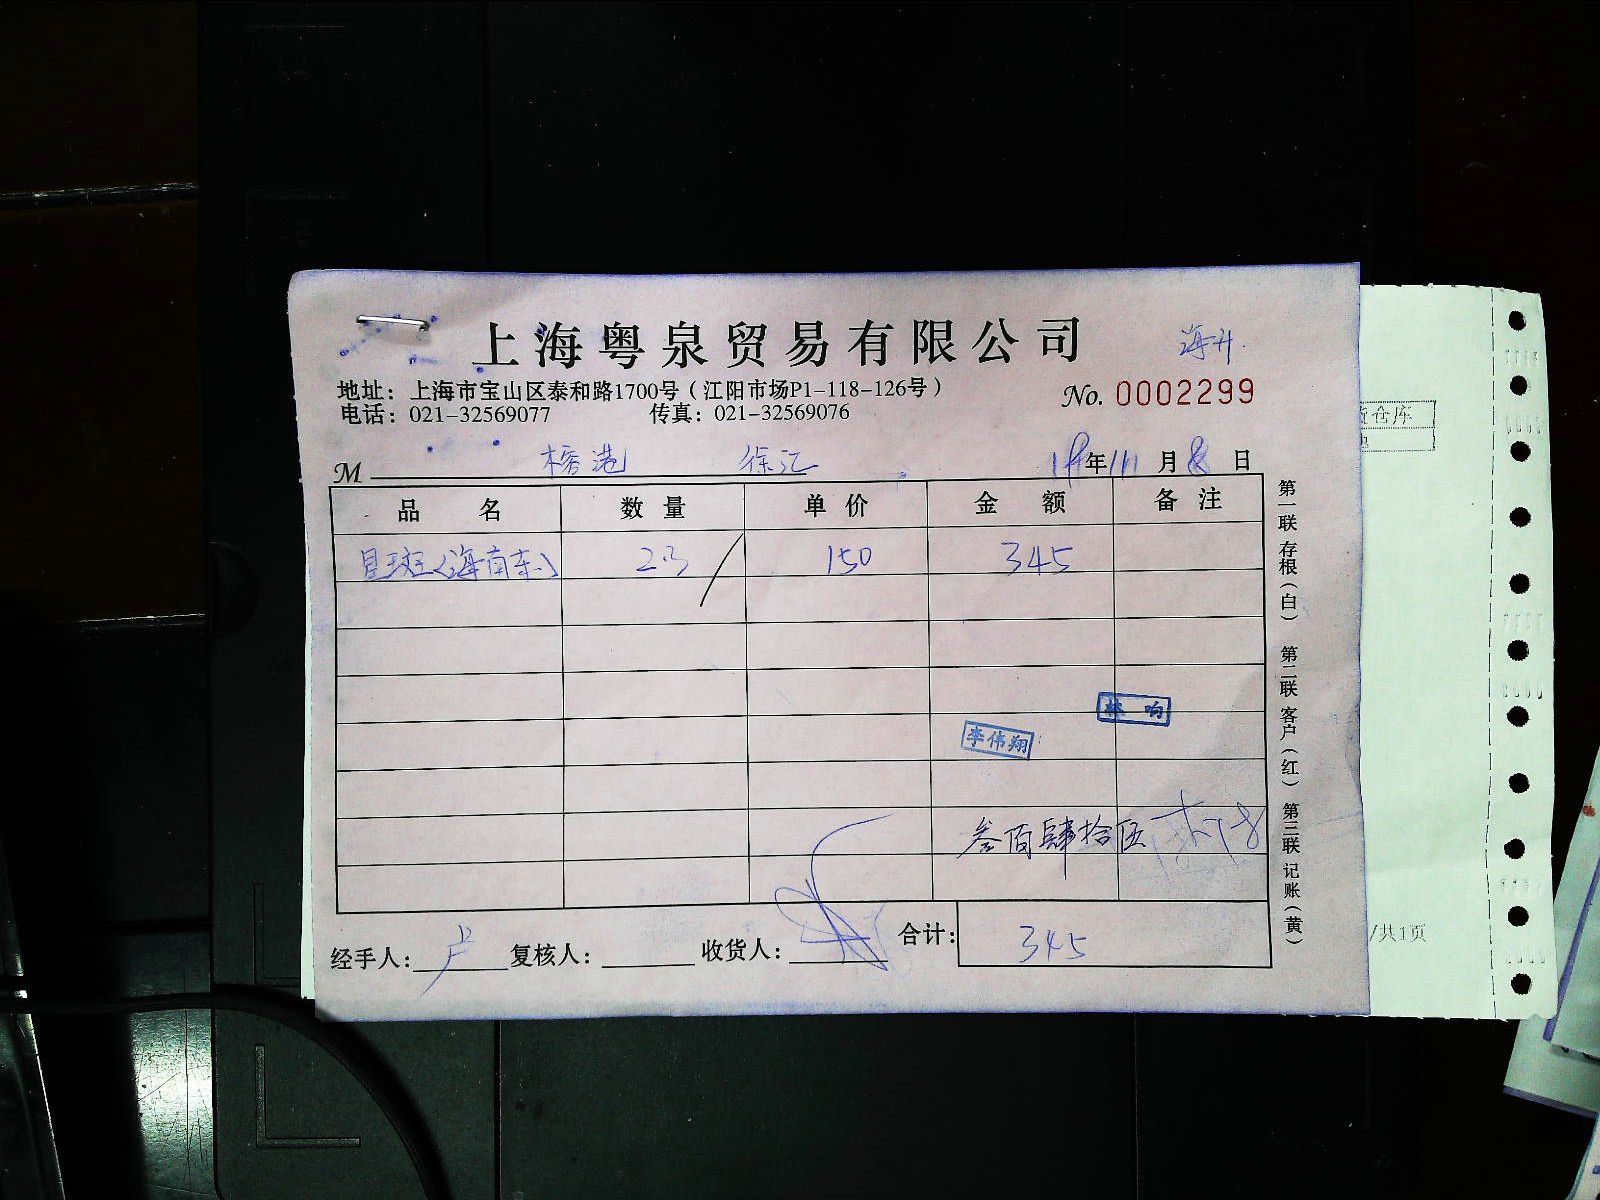 上海粤泉贸易有限公司
海升.
地址：上海市宝山区泰和路1700号（江阳市场P1-118-126号）
No. 0002299
电话：021-32569077 传真：021-32569076
M 榕港 徐汇 年 11 月 8 日
品名 数量 单价 金额 备注
星斑(海南东) 2.3 150 345
林响
李伟翔
叁佰肆拾伍
经手人：卢 复核人： 收货人： 合计：345
第一联 存根（白） 第二联 客户（红） 第三联 记账（黄）
仓库
/共1页